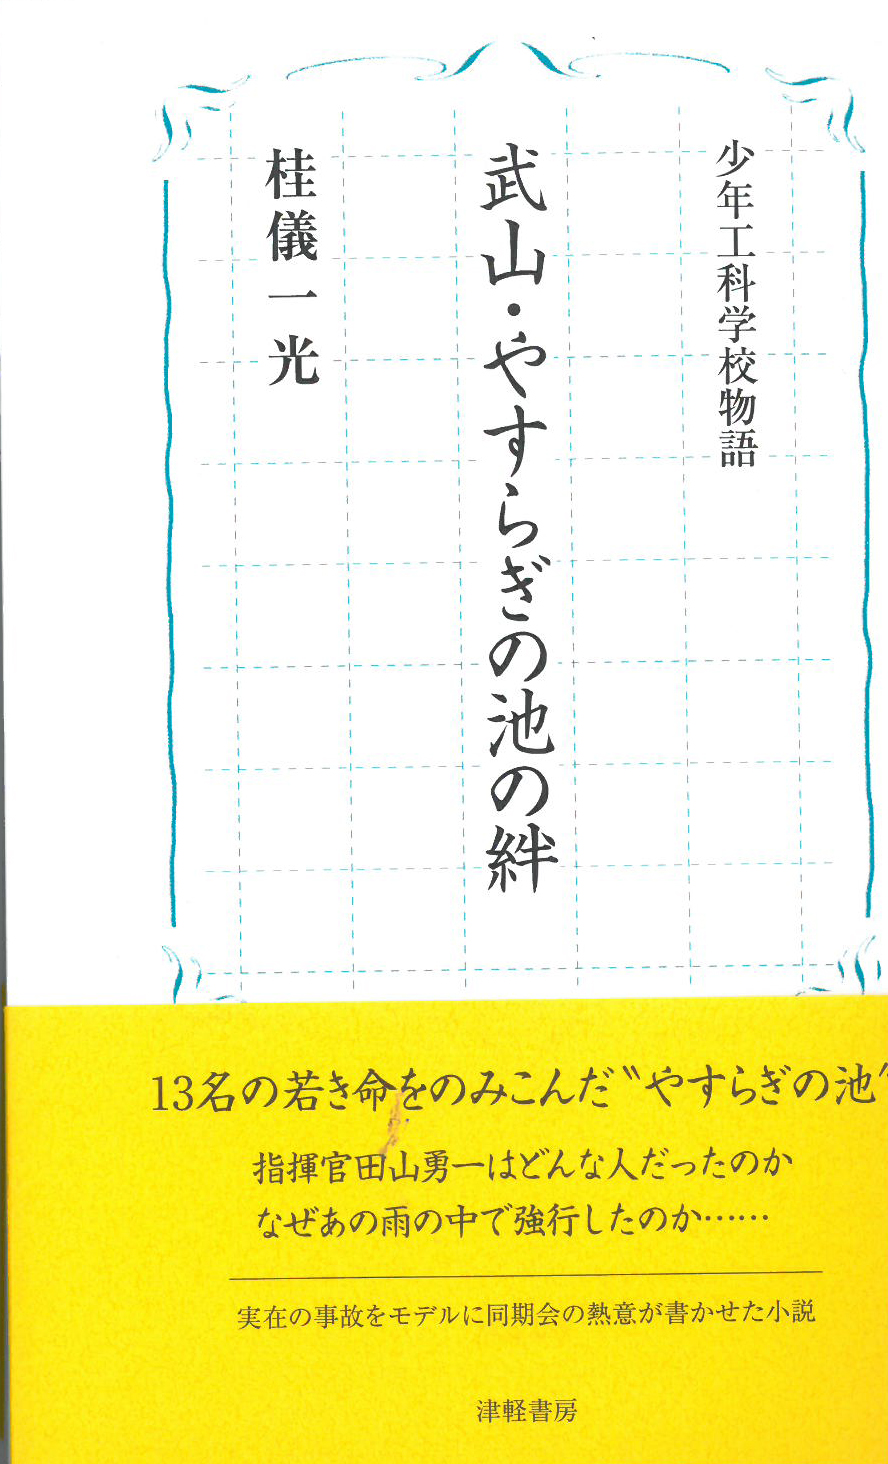 少年工科学校物語
武山・やすらぎの池の絆
桂儀一光
13名の若き命をのみこんだ〝やすらぎの池〟
指揮官田山勇一はどんな人だったのか
なぜあの雨の中で強行したのか……
実在の事故をモデルに同期会の熱意が書かせた小説
津軽書房